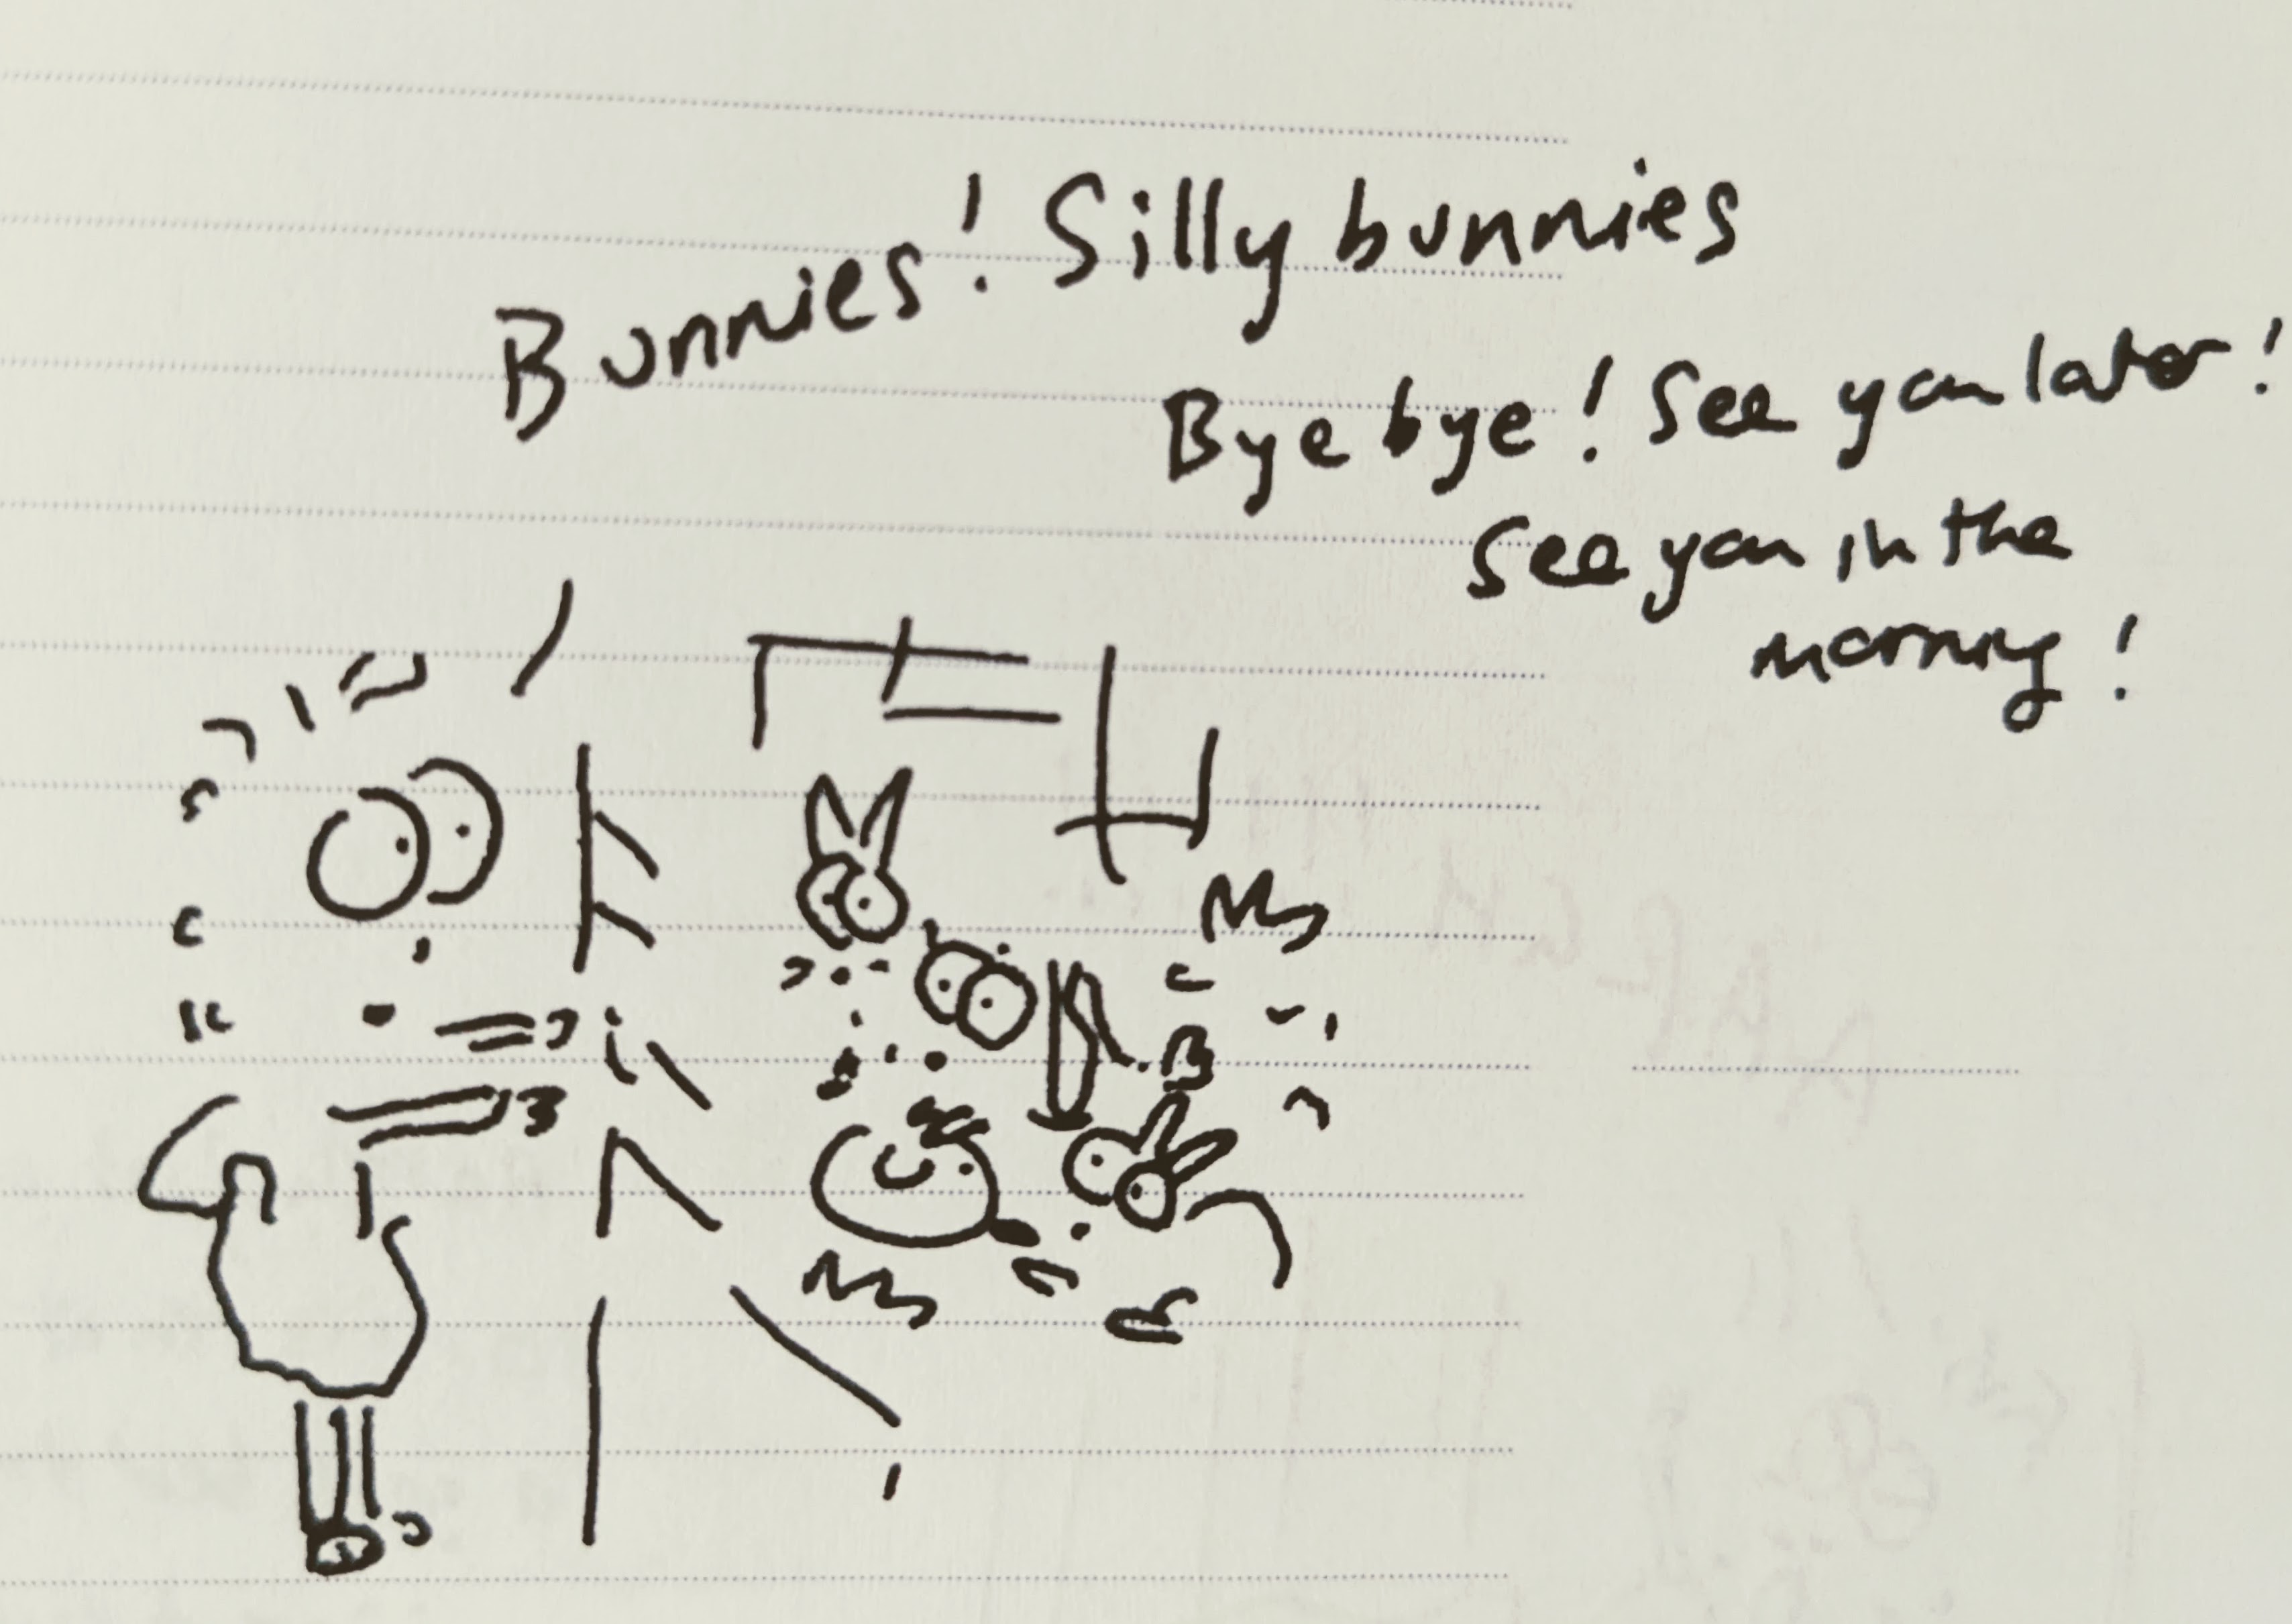 Bunnies! Silly bunnies
Bye bye! See you later!
See you in the
morning!